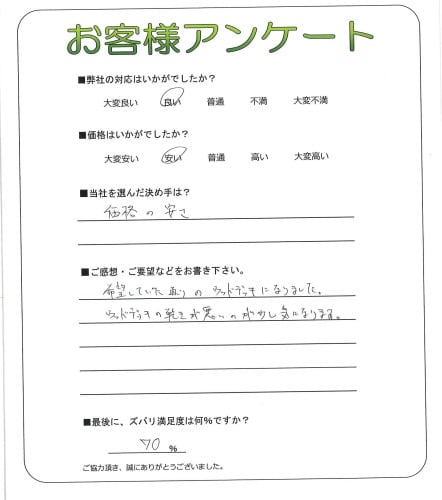 お客様アンケート
■弊社の対応はいかがでしたか?
大変良い 良い 普通 不満 大変不満
■価格はいかがでしたか?
大変安い 安い 普通 高い 大変高い
■当社を選んだ決め手は?
価格の安さ
■ご感想・ご要望などをお書き下さい。
希望していた通りのウッドデッキになりました。
ウッドデッキの乾きが悪いのが少し気になります。
■最後に、ズバリ満足度は何%ですか?
70 %
ご協力頂き、誠にありがとうございました。